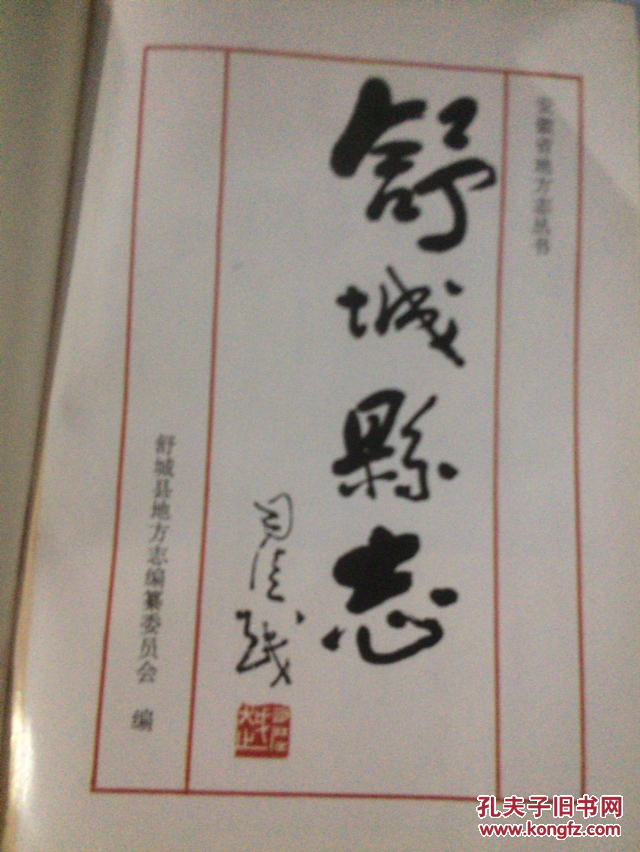 安徽省地方志丛书
舒城縣志
舒城县地方志编纂委员会 编
孔夫子旧书网
www.kongfz.com